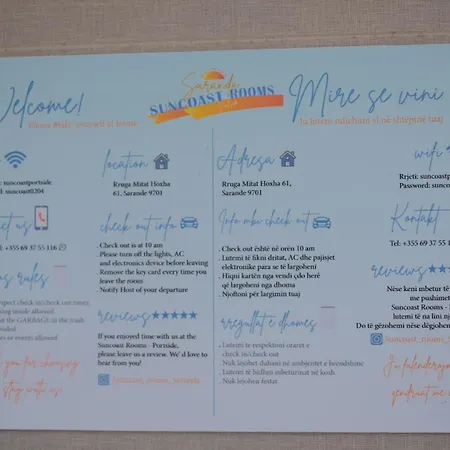 Saranda
SUNCOAST ROOMS
Welcome!
Please Make yourself at home
: suncoastportside
: suncoast0204
: +355 69 37 55 116
rules
respect check in/check out room
smoking inside allowed
the GARBAGE in the trash
or events allowed
you for choosing
stay with us!
location
Rruga Mitat Hoxha
61, Sarande 9701
check out info
. Check out is at 10 am
. Please turn off the lights, AC
and electronics device before leaving
. Remove the key card every time you
leave the room
. Notify Host of your departure
reviews
If you enjoyed time with us at the
Suncoast Rooms - Portside,
please leave us a review. We'd love to
hear from you!
Mire se vini
Ju lutemi ndjehuni si në shtëpinë tuaj
Adresa
Rruga Mitat Hoxha 61,
Sarande 9701
Info mbi check out
. Check out është në orën 10 am
. Lutemi të fikni dritat, AC dhe pajisjet
elektronike para se të largoheni
. Hiqni kartën nga vendi çdo herë
që largoheni nga dhoma
. Njoftoni për largimin tuaj
rregullat e dhomes
. Lutemi te respektoni oraret e
check in/check out
. Nuk lejohet duhani
. Lutemi të hidhni mbeturinat në kosh
. Nuk lejohen festat
wifi
Rrjeti: suncoastp
Password: sunco
Kontakt
Tel: +355 69 37 55
reviews
Nëse keni mbetur të
me pushimet
Suncoast Rooms -
lutemi të na lini nj
Do të gëzohemi nëse dëgjohem
suncoast_rooms_
Ju falenderojm